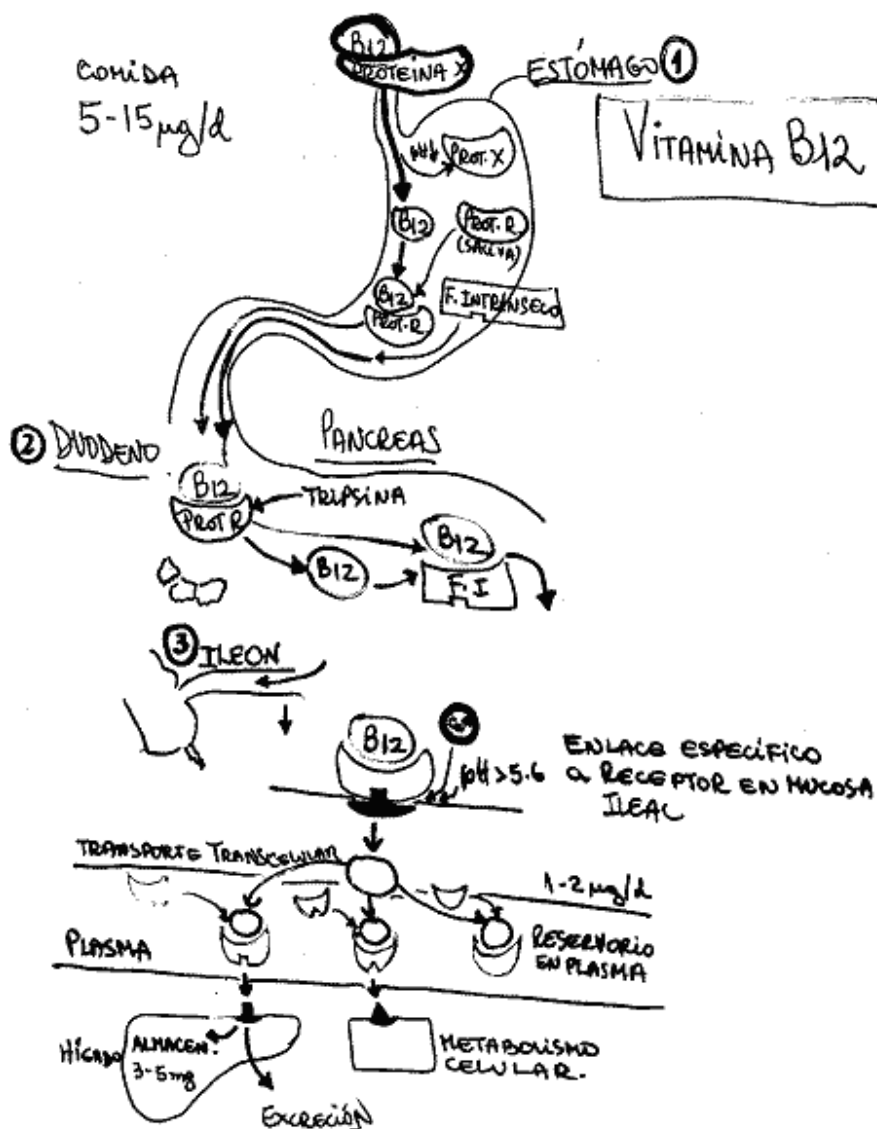 B12
PROTEINA X
COMIDA
5-15 µg/d
ESTÓMAGO 1
VITAMINA B12
pH↓
PROT. X
B12
PROT. R
(SALIVA)
B12
PROT. R
F. INTRÍNSECO
2 DUODENO
PANCREAS
B12
PROT R
TRIPSINA
B12
B12
F. I
3 ILEON
B12
pH>5.6
ENLACE ESPECÍFICO
a RECEPTOR EN MUCOSA
ILEAL
TRANSPORTE TRANSCELULAR
1-2 µg/d
PLASMA
RESERVORIO
EN PLASMA
HÍGADO
ALMACEN.
3-5mg
METABOLISMO
CELULAR.
EXCRECIÓN